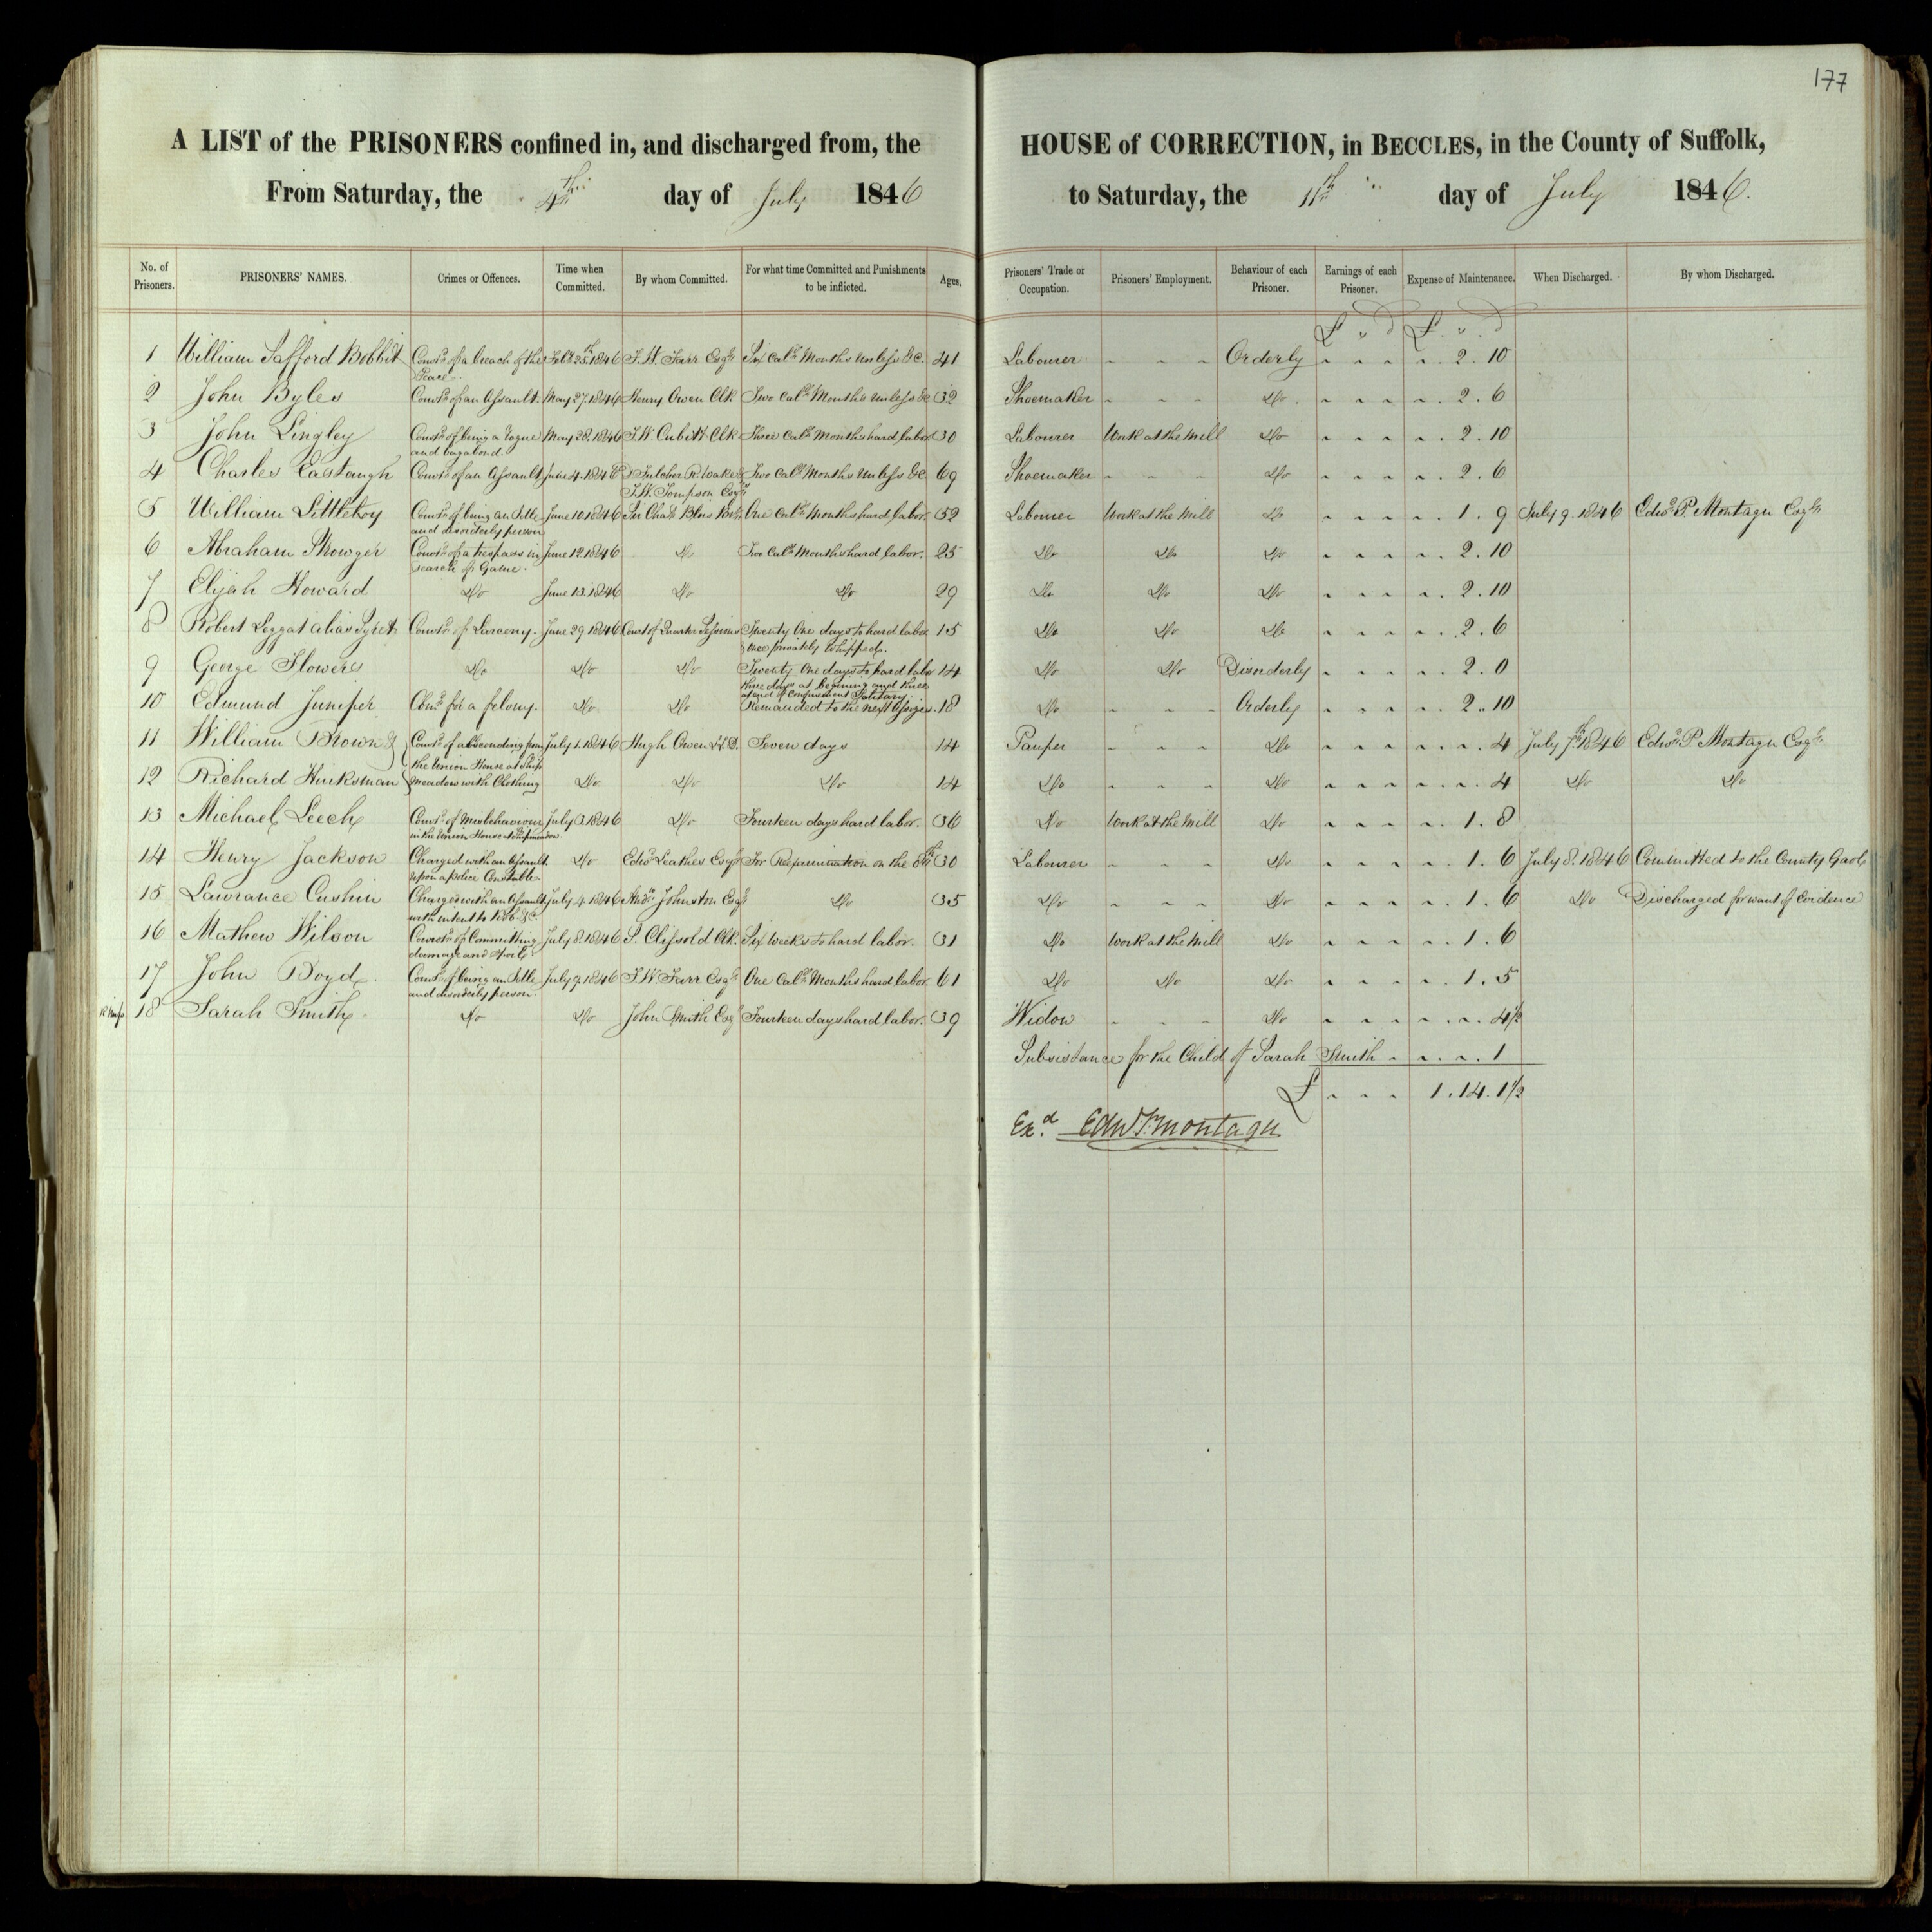 177
A LIST of the PRISONERS confined in, and discharged from, the HOUSE of CORRECTION, in BECCLES, in the County of Suffolk,
From Saturday, the 4th day of July 1846 to Saturday, the 11th day of July 1846.
No. of Prisoners. PRISONERS' NAMES. Crimes or Offences. Time when Committed. By whom Committed. For what time Committed and Punishments to be inflicted. Ages. Prisoners' Trade or Occupation. Prisoners' Employment. Behaviour of each Prisoner. Earnings of each Prisoner. Expense of Maintenance. When Discharged. By whom Discharged.
£ " d £ " d
1 William Safford Bobbit Convd. of a breach of the Peace Feby. 25th 1846 F. W. Farr Esqr. Six Calr. Months unless &c. 41 Labourer - - - Orderly 2. 10
2 John Byles Convd. of an Assault. May 27. 1846 Henry Owen Clk Two Calr. Months unless &c 32 Shoemaker - - - Do. 2. 6
3 John Lingley Convd. of being a rogue and vagabond. May 28. 1846 F. W. Cubitt Clk Three Calr. Months hard labor. 30 Labourer Work at the Mill Do 2. 10
4 Charles Eastaugh Convd. of an Assault June 4. 1846 Fulcher R. Wake & F. W. Tompson Esqrs Two Calr. Months unless &c 69 Shoemaker - - - Do 2. 6
5 William Littleboy Convd. of being an Idle and disorderly person June 10. 1846 Sir Chas. Blois Bart. One Calr. Months hard labor. 52 Labourer Work at the Mill Do 1. 9 July 9. 1846 Edwd. P. Montagu Esqr.
6 Abraham Thowger Convd. of a trespass in search of Game. June 12 1846 Do Two Calr. Months hard labor. 25 Do Do Do 2. 10
7 Elijah Howard Do June 13. 1846 Do Do 29 Do Do Do 2. 10
8 Robert Leggat alias Convd. of Larceny. June 29. 1846 Court of Quarter Sessions Twenty One days to hard labor once privately Whipped. 15 Do Do Do 2. 6
9 George Flowers Do Do Do Twenty One days to hard labor three days at begining and three at end of Confinement Solitary 14 Do Do Disorderly 2. 0
10 Edmund Juniper Comd. for a felony. Do Do Remanded to the next Assizes. 18 Do - - - Orderly 2. 10
11 William Brown & Convd. of absconding from the Union House at Ship July 1. 1846 Hugh Owen L.L.D. Seven days 14 Pauper - - - Do 4 July 7th. 1846 Edwd. P. Montagu Esqr.
12 Richard Hinksman meadow with Clothing Do Do Do 14 Do - - - Do 4 Do Do
13 Michael Leech Convd. of Misbehaviour in the Union House at Shipmeadow. July 3. 1846 Do Fourteen days hard labor. 36 Do Work at the Mill Do 1. 8
14 Henry Jackson Charged with an Assault upon a police Constable Do Edwd. Leathes Esqr. For Reexamination on the 8th 30 Labourer - - - Do 1. 6 July 8. 1846 Committed to the County Gaol
15 Lawrance Cushin Charged with an Assault with intent to Rob &c. July 4. 1846 Andw. Johnston Esqr. Do 35 Do - - - Do 1. 6 Do Discharged for want of Evidence
16 Mathew Wilson Convd. of Committing damage and spoil July 8. 1846 Clissold Clk. Six Weeks to hard labor. 31 Do Work at the Mill Do 1. 6
17 John Boyd Convd. of being an Idle and disorderly person. July 9. 1846 F. W. Farr Esqr. One Calr. Months hard labor. 61 Do Do Do 1. 5
18 Sarah Smith Do Do John Smith Esqr Fourteen days hard labor. 39 Widow - - - Do 4½
Subsistance for the Child of Sarah Smith 1
£ 1. 14. 1½
Exd. Edwd. P. Montagu